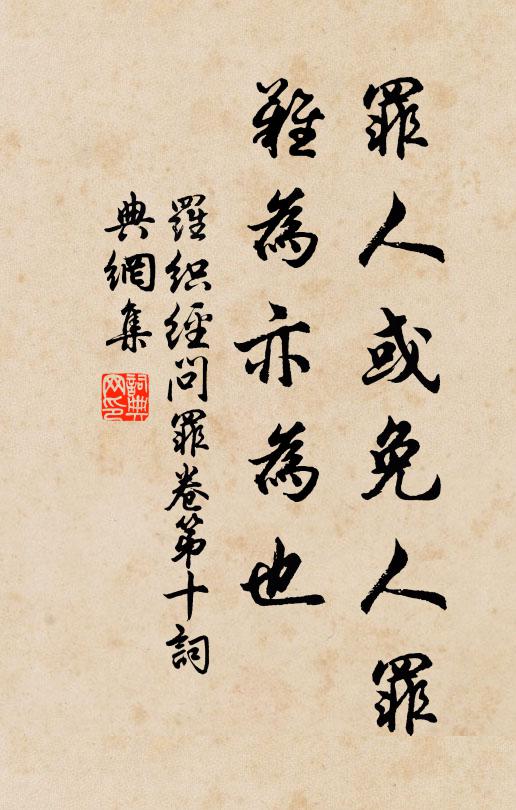 罪人或免人罪
難為亦為也
羅织經问罪卷第十詞
典網集
詞典
网印